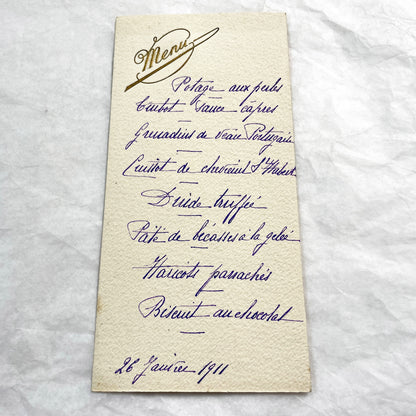 Menu
Potage aux perles
Turbot sauce câpres
Grenadins de veau Portugaise
Cuissot de chevreuil St Hubert
Dinde truffée
Pâté de bécasses à la gelée
Haricots panachés
Biscuit au chocolat
26 Janvier 1911